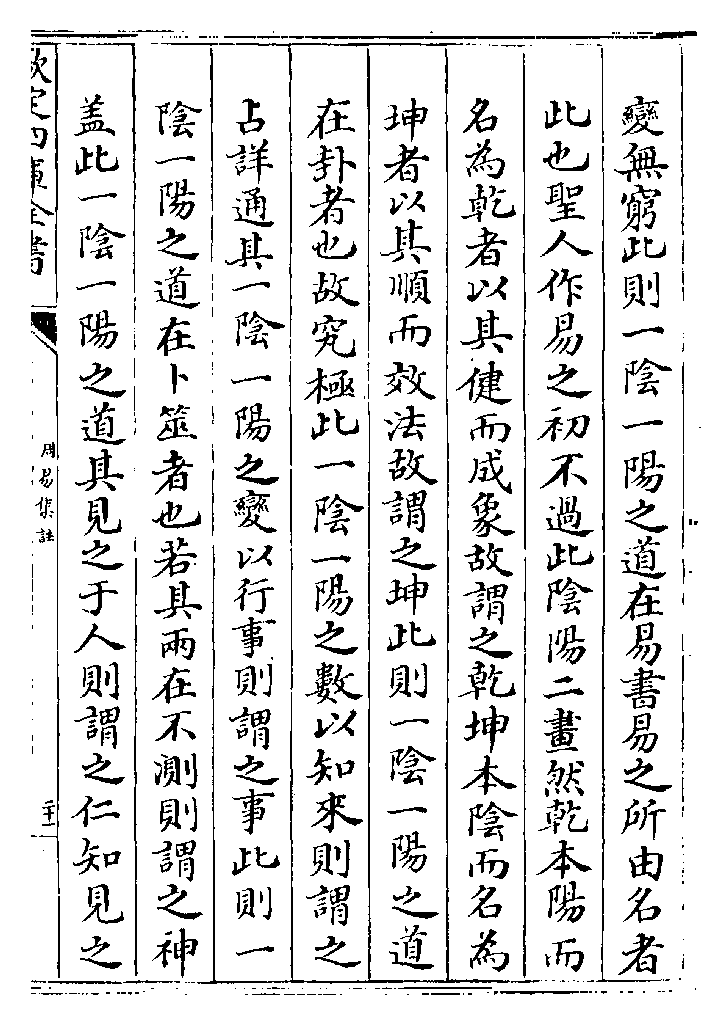 變無窮此則一陰一陽之道在易書易之所由名者
此也聖人作易之初不過此陰陽二畫然乾本陽而
名為乾者以其健而成象故謂之乾坤本陰而名為
坤者以其順而效法故謂之坤此則一陰一陽之道
在卦者也故究極此一陰一陽之數以知來則謂之
占詳通其一陰一陽之變以行事則謂之事此則一
陰一陽之道在卜筮者也若其兩在不測則謂之神
盖此一陰一陽之道其見之于人則謂之仁知見之
欽定四庫全書
周易集註
二十